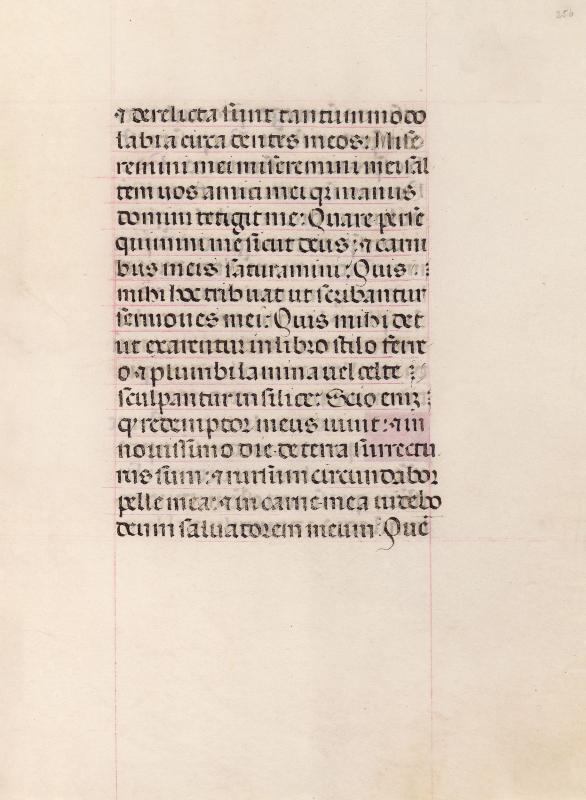 256
⁊ derelicta sunt tantummodo
labia circa dentes meos: Mise
remini mei miseremini mei sal
tem uos amici mei qȝ manus
domini tetigit me: Quare perse
quimini me sicut deus: ⁊ carni
bus meis saturamini: Quis
mihi hoc tribuat ut scribantur
sermones mei: Quis mihi det
ut exarentur in libro stilo ferre
o ⁊ plumbi lamina uel celte
sculpantur in silice: Scio enĩȝ
qɞ redemptor meus uiuit: ⁊ in
nouissimo die de terra surrectu
rus sum: ⁊ rursum circundabor
pelle mea: ⁊ in carne mea uidebo
deum saluatorem meum: Quẽ